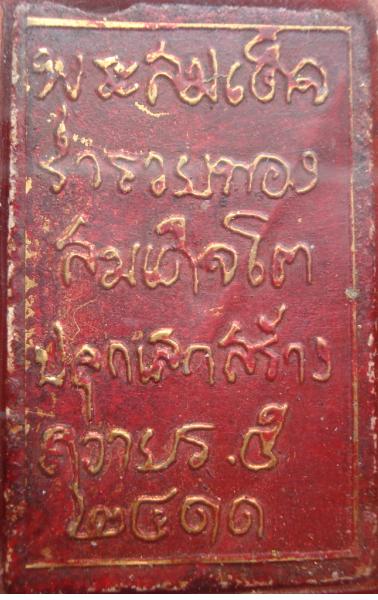 พระสมเด็จ
ร่ำรวยทอง
สมเด็จโต
ปลุกเสกสร้าง
ถวายร.๕
๒๔๑๑